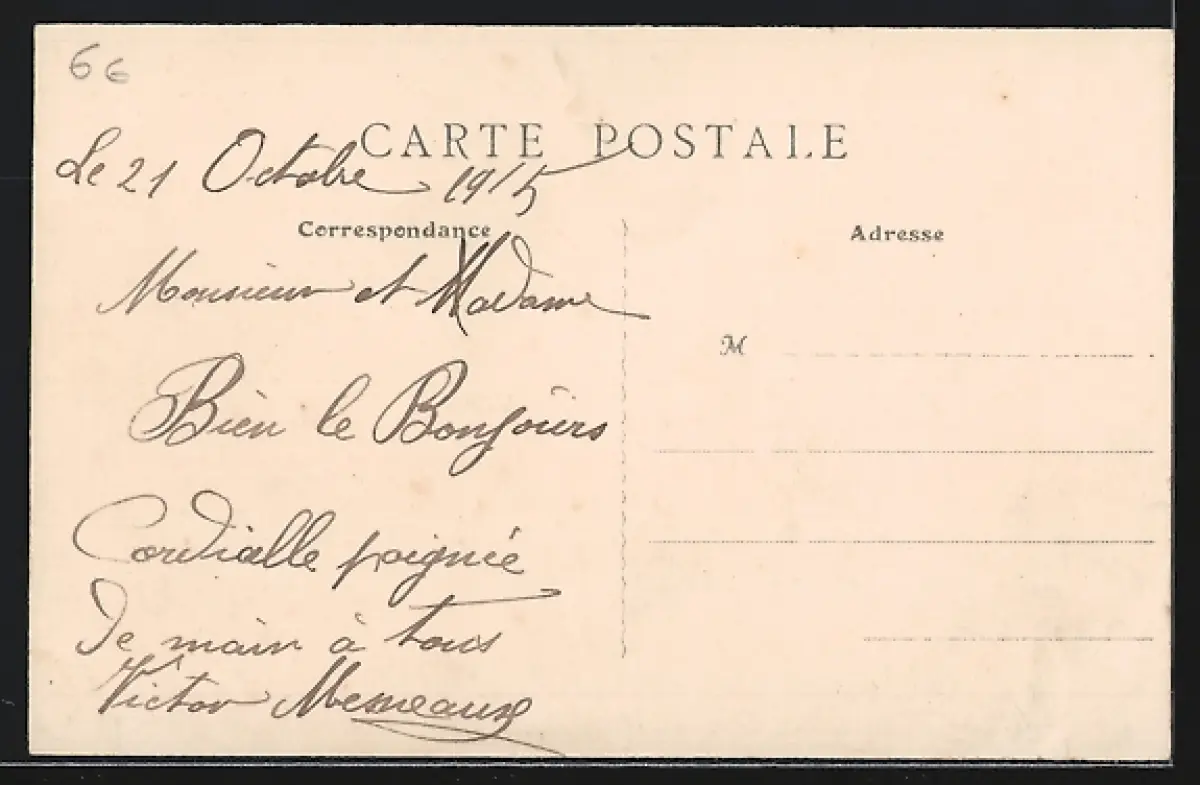 66
CARTE POSTALE
Le 21 Octobre 1915
Correspondance
Monsieur et Madame
Bien le Bonjours
Cordialle poignée
de main à tous
Victor
Adresse
M